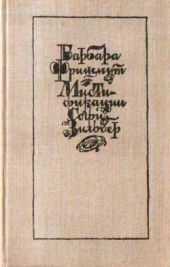 Барбара
Фришмут
Мисти-
фикации
Софи
Зильбер